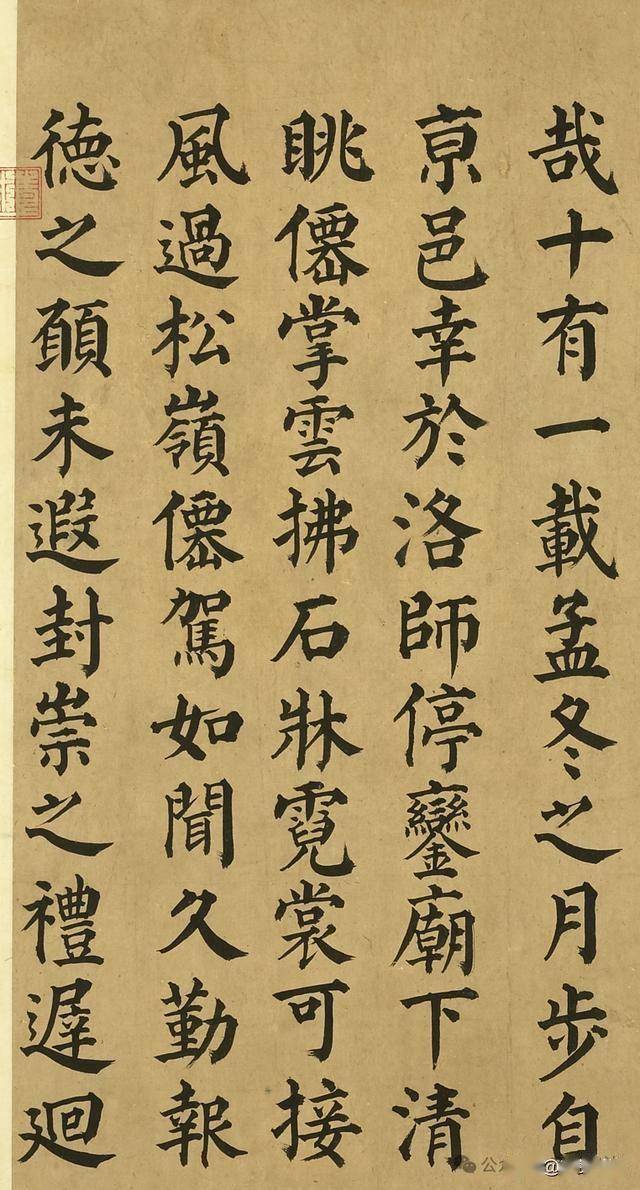 哉十有一載孟冬之月步自
京邑幸於洛師停鑾廟下清
眺僊掌雲拂石牀霓裳可接
風過松嶺僊駕如聞久勤報
德之願未遑封崇之禮遲迴
公
@